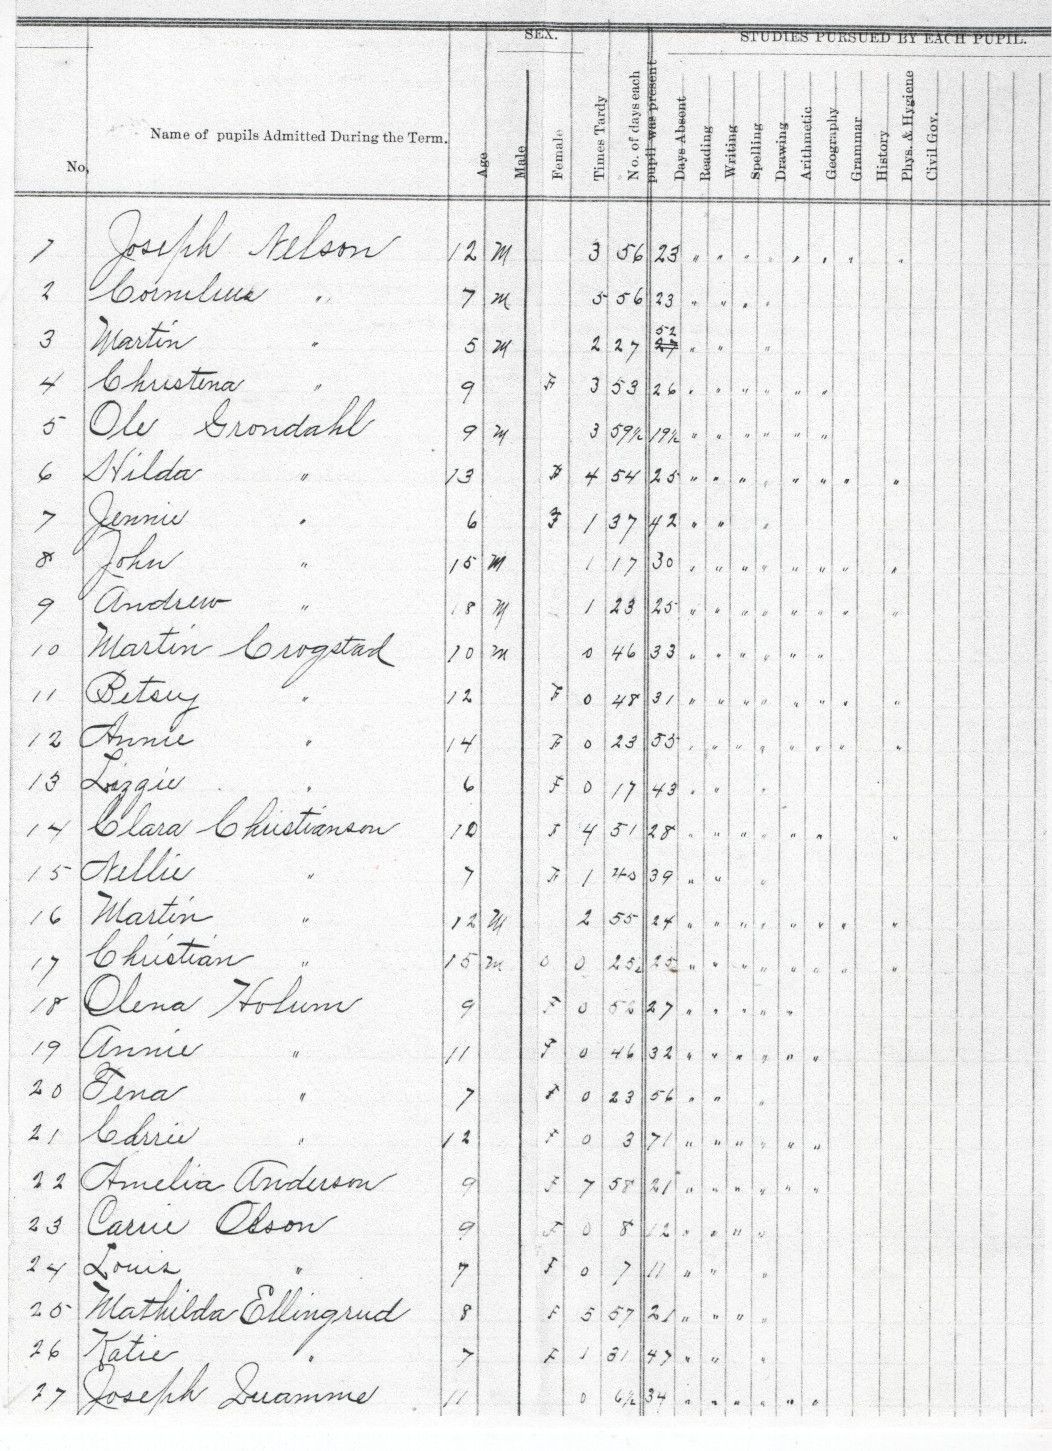 SEX. STUDIES PURSUED BY EACH PUPIL.
No. Name of pupils Admitted During the Term. Age Male Female Times Tardy No. of days each pupil was present Days Absent Reading Writing Spelling Drawing Arithmetic Geography Grammar History Phys. & Hygiene Civil Gov.
1 Joseph Nelson 12 M 3 56 23 " " " " " " " "
2 Cornelius " 7 M 5 56 23 " " " "
3 Martin " 5 M 2 27 52 " " "
4 Christena " 9 F 3 53 26 " " " " " "
5 Ole Grondahl 9 M 3 59½ 19½ " " " " " "
6 Hilda " 13 F 4 54 25 " " " " " " " "
7 Jennie " 6 F 1 37 42 " " "
8 John " 15 M 1 17 30 " " " " " " " "
9 Andrew " 18 M 1 23 25 " " " " " " " "
10 Martin Crogstad 10 M 0 46 33 " " " " " "
11 Betsey " 12 F 0 48 31 " " " " " " " "
12 Annie " 14 F 0 23 55 " " " " " " " "
13 Lizzie " 6 F 0 17 43 " " "
14 Clara Christianson 10 F 4 51 28 " " " " " " "
15 Nellie " 7 F 1 40 39 " " "
16 Martin " 12 M 2 55 24 " " " " " " " "
17 Christian " 15 M 0 0 25 " " " " " " " "
18 Olena Holum 9 F 0 27 " " " " "
19 Annie " 11 F 0 46 32 " " " " " "
20 Tena " 7 F 0 23 56 " " "
21 Carrie " 12 F 0 3 71 " " " " " "
22 Amelia Anderson 9 F 7 58 21 " " " " " "
23 Carrie Olson 9 F 0 8 12 " " " "
24 Louis " 7 F 0 7 11 " " "
25 Mathilda Ellingrud 8 F 5 57 21 " " " "
26 Katie " 7 F 1 31 47 " " "
27 Joseph Quamme 11 0 6½ 34 " " " " " "